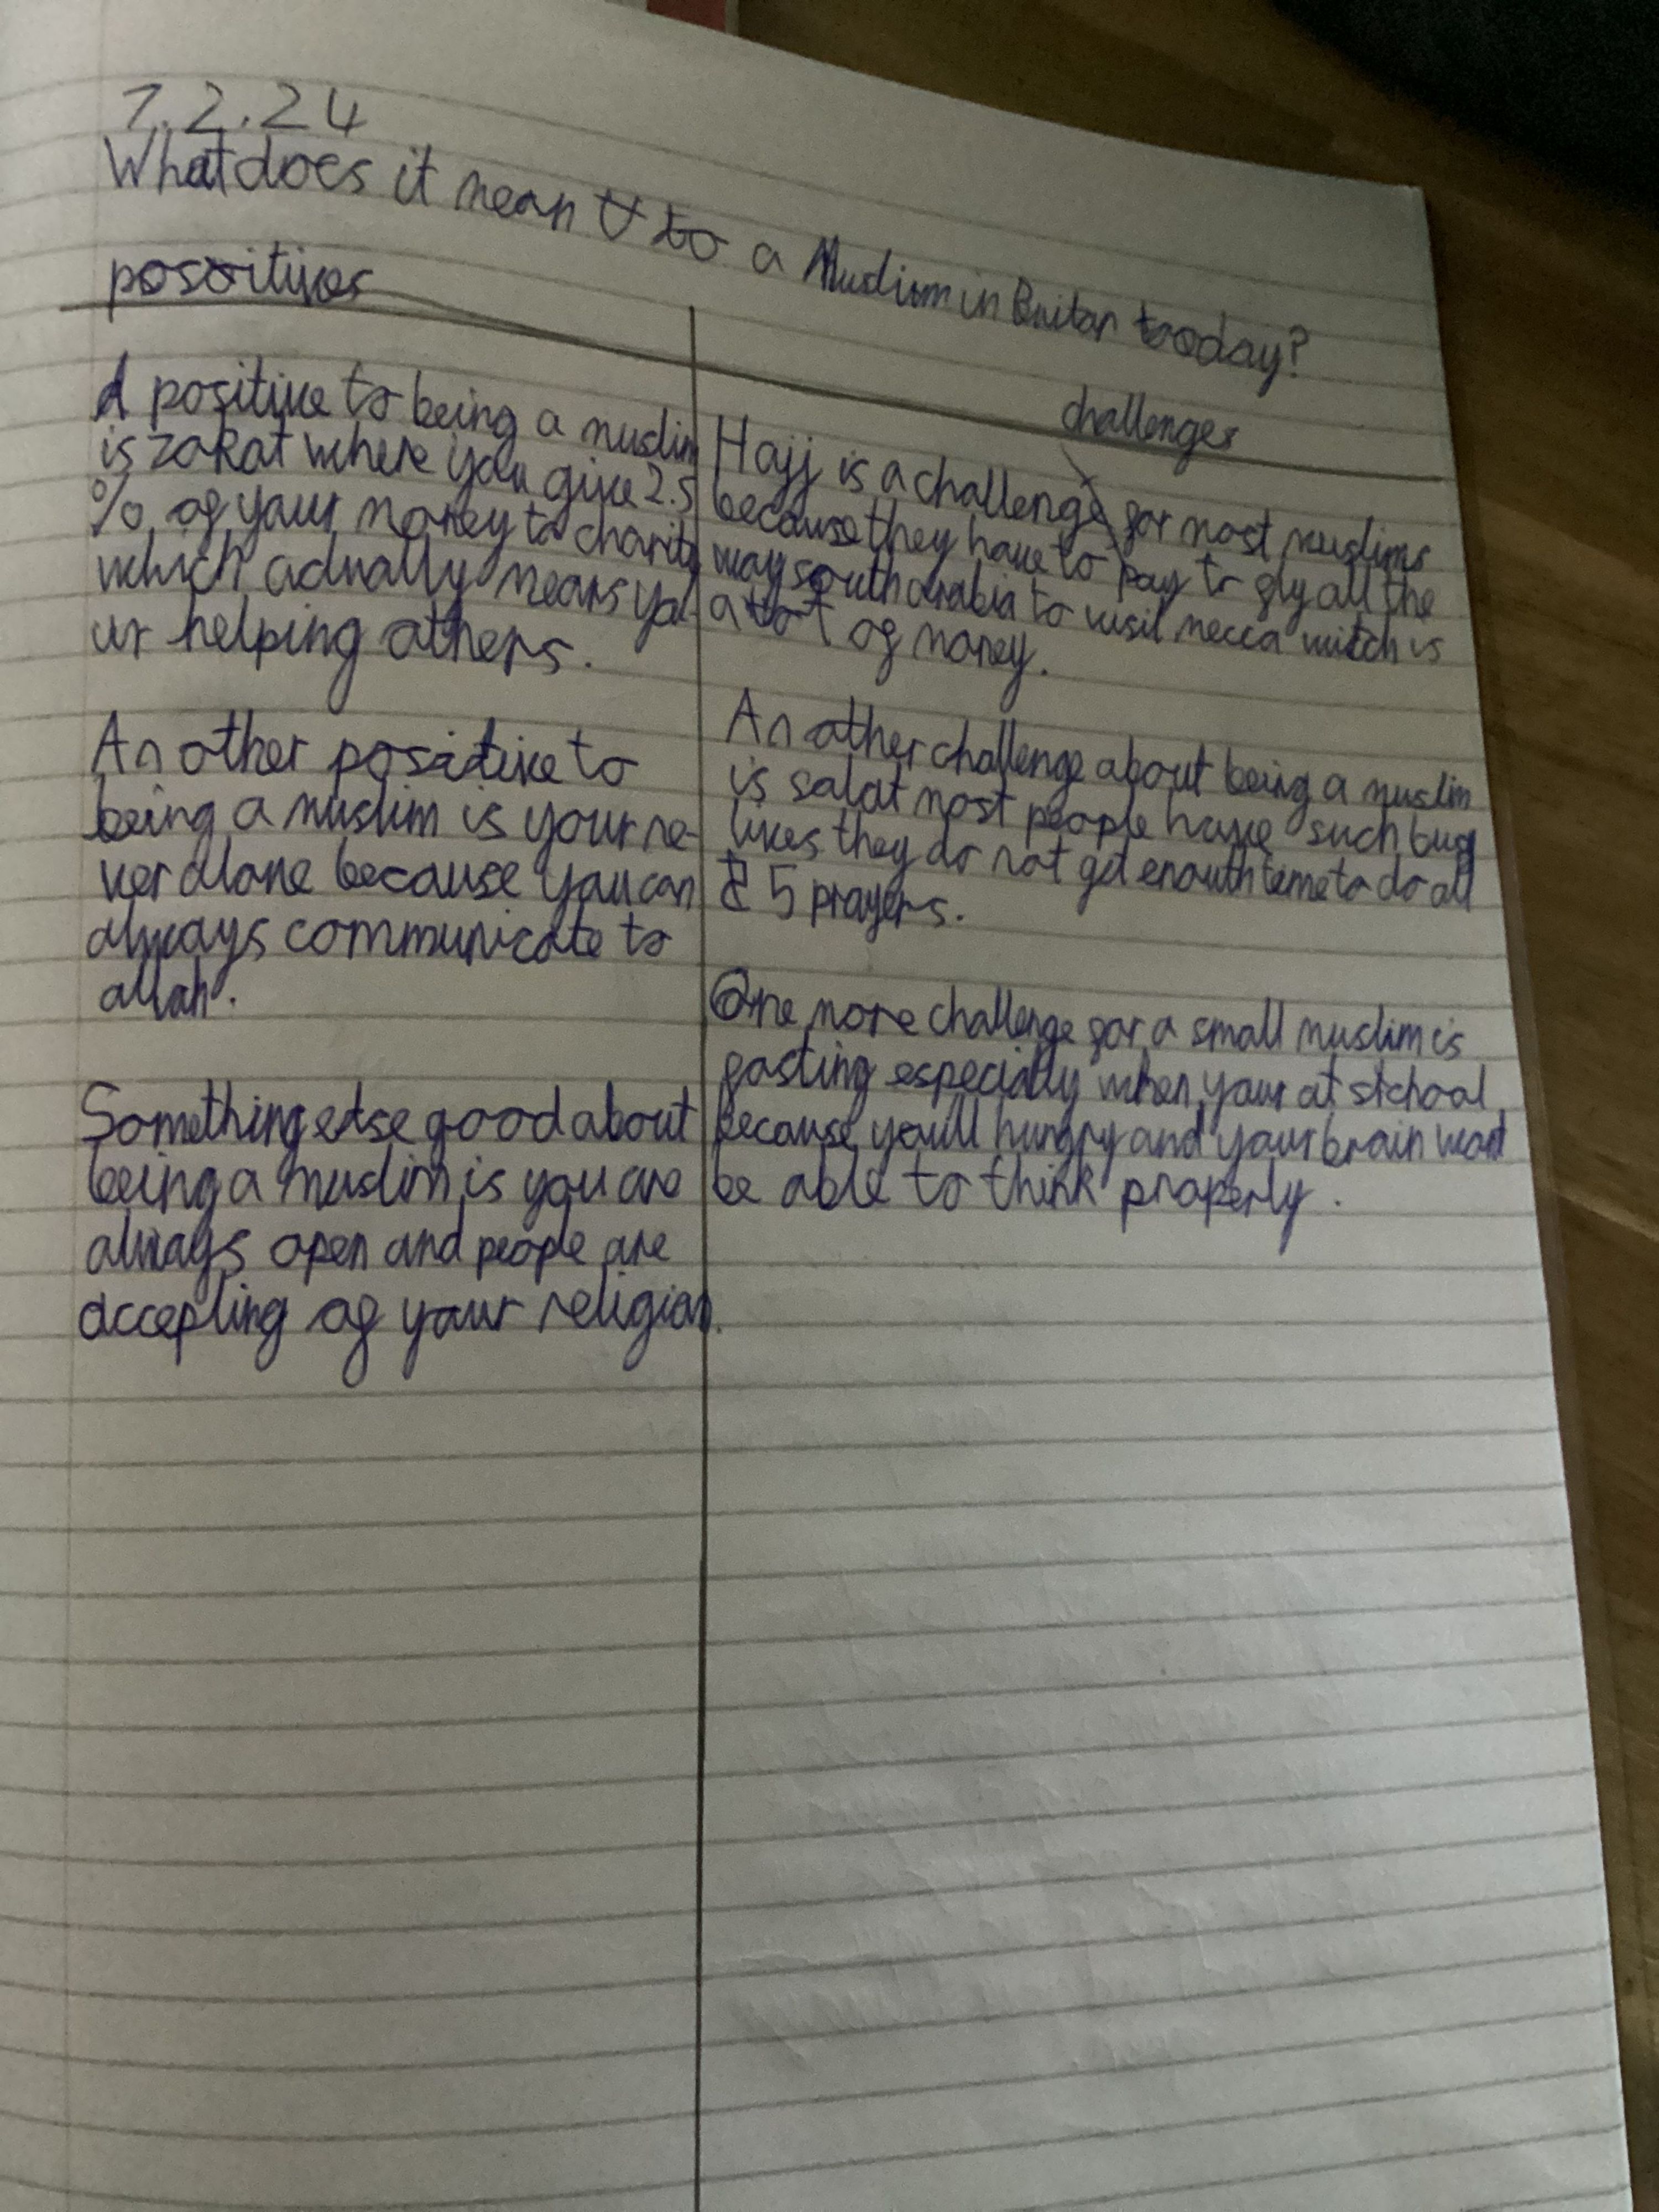 7.2.24
What does it mean to a Muslim in Britan today?
positives
A positive to being a muslim
is zakat where you give 2.5
% of your money to charity
which actually means yo
ur helping others.
An other positive to
being a muslim is your ne-
ver alone because you can
always communicate to
allah.
Something else good about
being a muslim is you are
always open and people are
accepting of your religion.
challenges
Hajj is a challenge for most muslims
because they have to pay to fly all the
way south arabia to visit mecca witch is
a lot of money.
An other challenge about being a muslim
is salat most people have such busy
lives they do not get enouth time to do all
5 prayers.
One more challenge for a small muslim is
fasting especially when your at school
because youll hungry and your brain wont
be able to think properly.